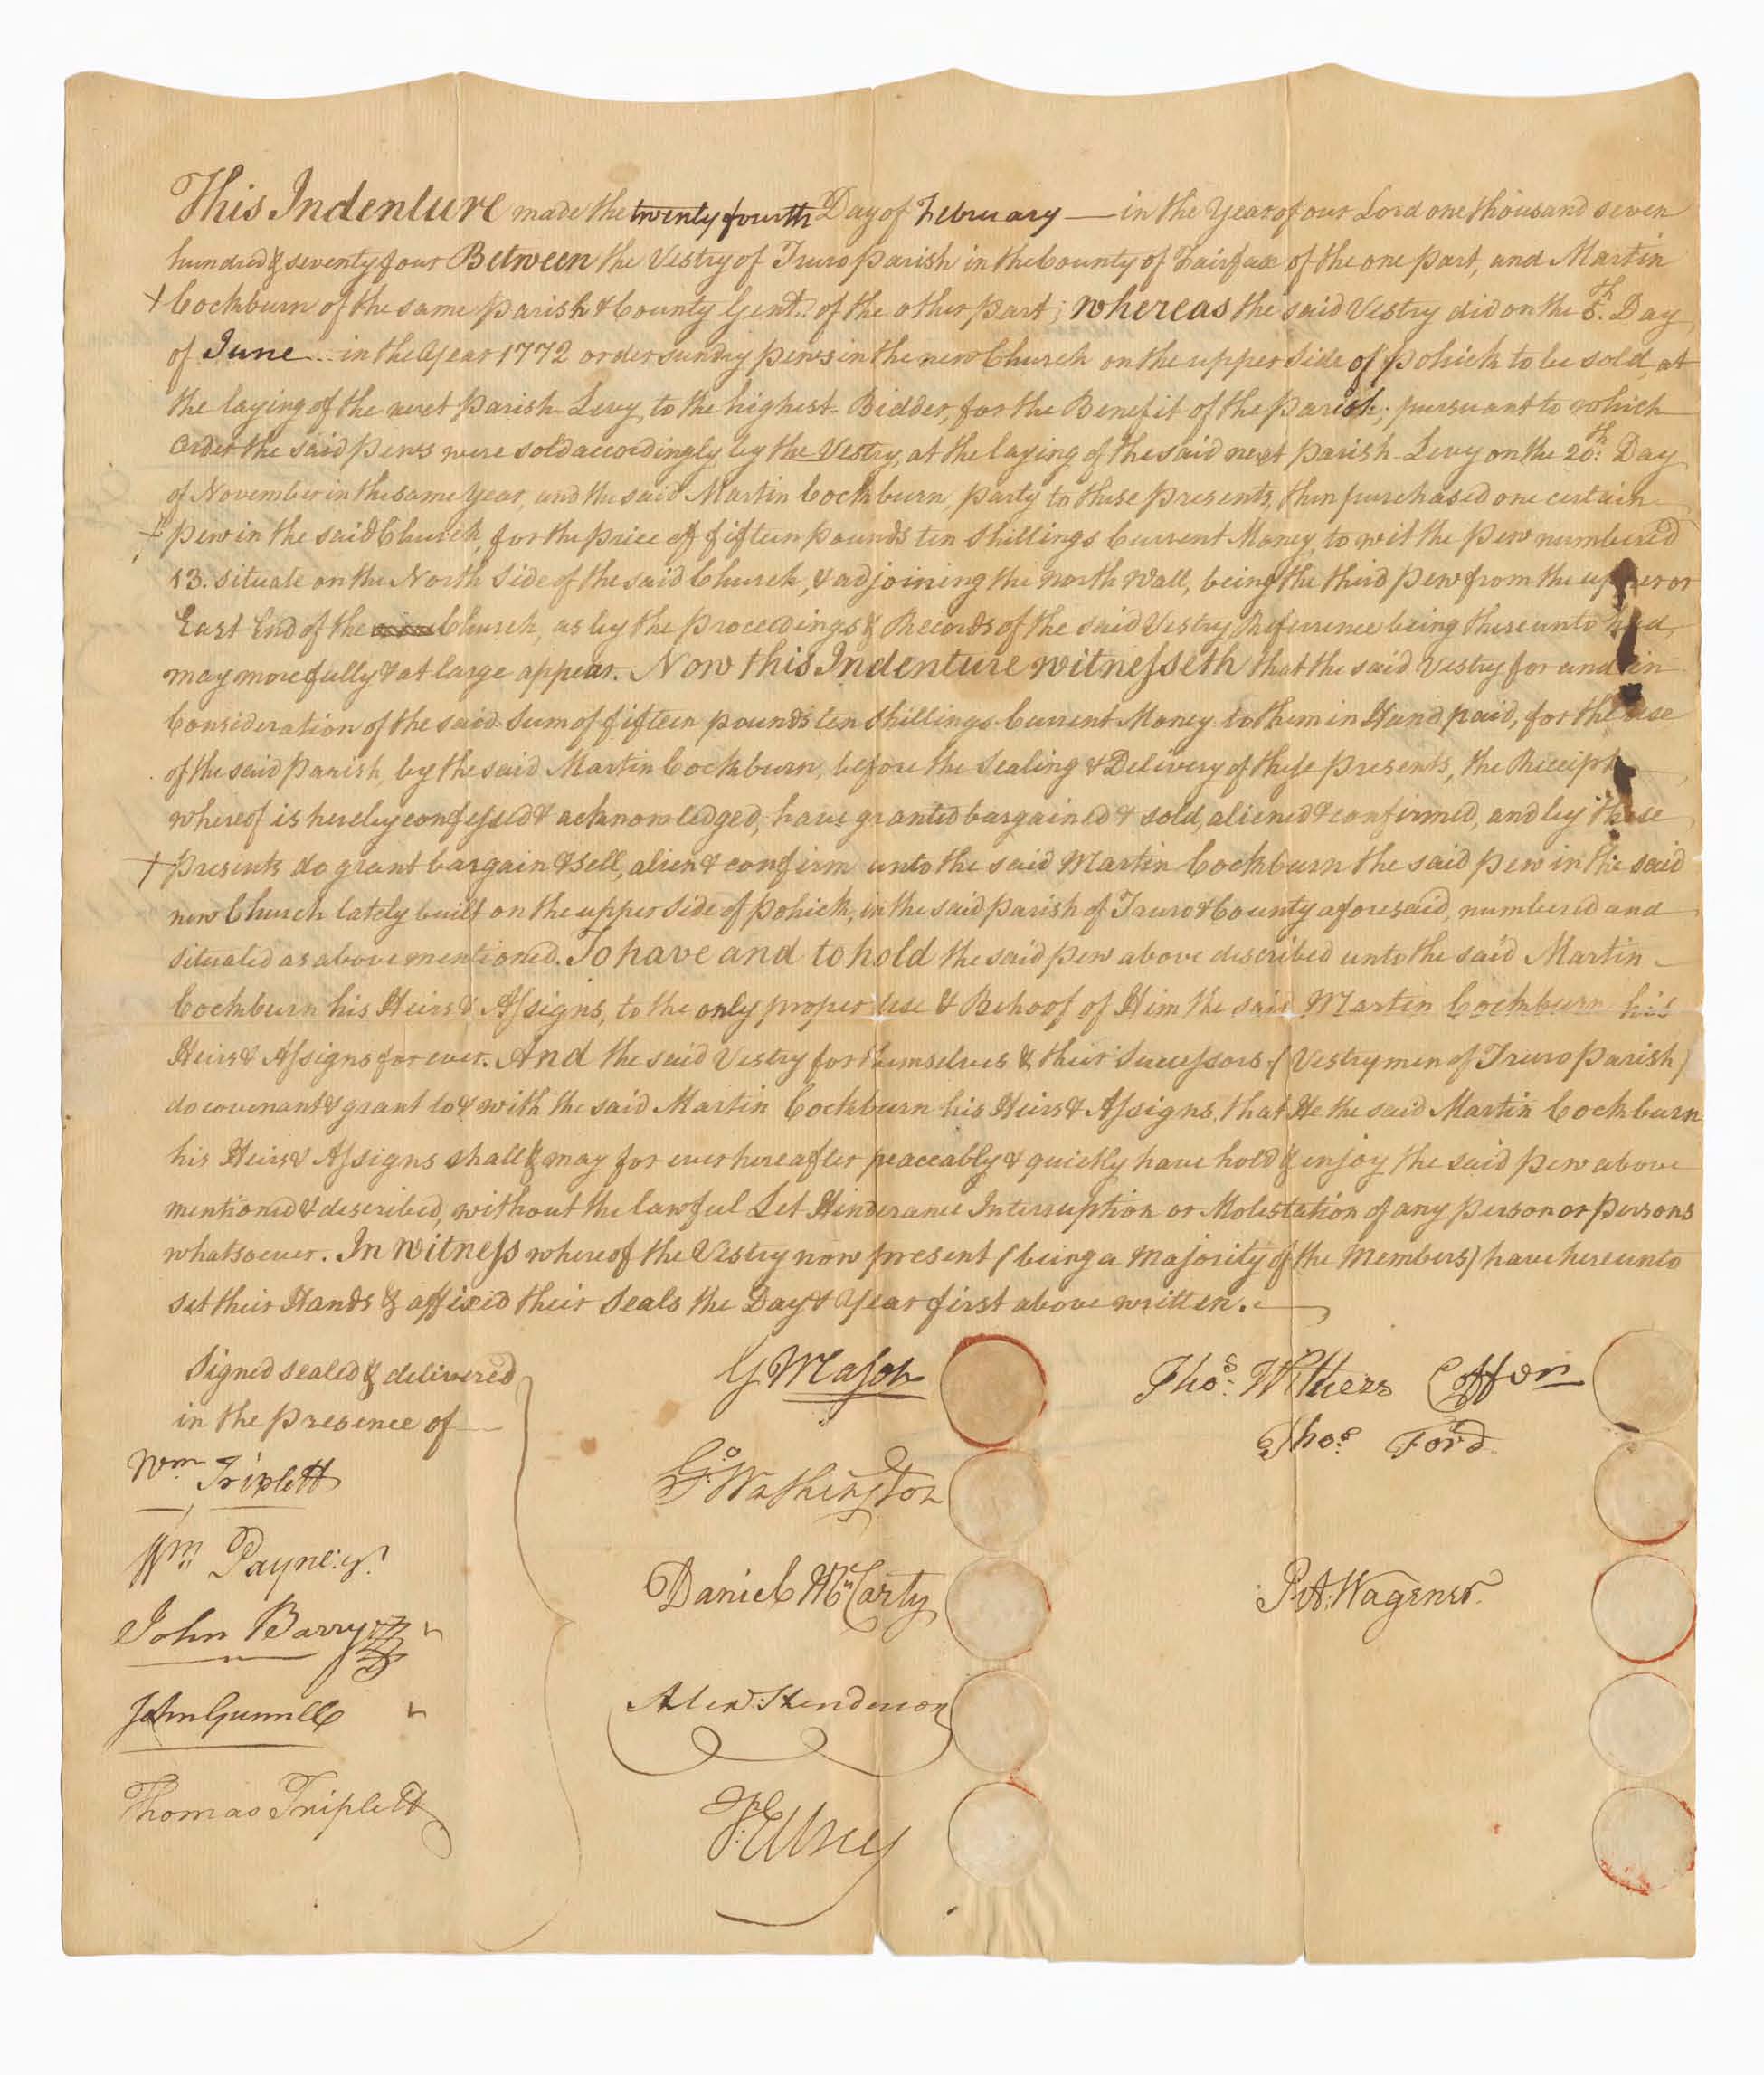 This Indenture made the twenty fourth Day of February — in the Year of our Lord one thousand seven
hundred & seventy four Between the Vestry of Truro Parish in the County of Fairfax of the one part, and Martin
Cockburn of the same parish & County Gent. of the other part; whereas the said Vestry did on the 5th. Day
of June in the Year 1772 order sundry pews in the new Church on the upper Side of Pohick to be sold, at
the laying of the next Parish-Levy, to the highest Bidder, for the Benefit of the Parish; pursuant to which
Order the said pews were sold accordingly by the Vestry, at the laying of the said next Parish-Levy on the 20th: Day
of November in the same Year, and the said Martin Cockburn, party to these presents, then purchased one certain
Pew in the said Church, for the price of fifteen pounds ten Shillings Current Money, to wit the Pew numbered
13. situate on the North Side of the said Church, & adjoining the north Wall, being the third pew from the upper or
East End of the Church, as by the Proceedings & Records of the said Vestry Referrence being thereunto had,
may more fully & at large appear. Now this Indenture witnesseth that the said Vestry for and in
Consideration of the said Sum of fifteen pounds ten Shillings Current Money to them in Hand paid, for the use
of the said Parish, by the said Martin Cockburn, before the Sealing & Delivery of these presents, the Receipt
whereof is hereby confessed & acknowledged, have granted bargained & sold, aliened & confirmed, and by these
presents do grant bargain & sell, alien & confirm unto the said Martin Cockburn the said pew in the said
new Church lately built on the upper Side of Pohick, in the said parish of Truro & County aforesaid, numbered and
situated as above mentioned. To have and to hold the said pew above described unto the said Martin
Cockburn his Heirs & Assigns, to the only proper Use & Behoof of Him the said Martin Cockburn his
Heirs & Assigns for ever. And the said Vestry for themselves & their Successors (Vestrymen of Truro Parish)
do covenant & grant to & with the said Martin Cockburn his Heirs & Assigns, that He the said Martin Cockburn
his Heirs & Assigns shall & may for ever hereafter peaceably & quietly have hold & enjoy the said pew above
mentioned & described, without the lawful Let Hinderance Interruption or Molestation of any person or persons
whatsoever. In Witness whereof the Vestry now present (being a Majority of the Members) have hereunto
set their Hands & affixed their Seals the Day & Year first above written.
Signed sealed & delivered
in the presence of
Wm Triplett
Wm Payne
John Barry
John Gunnell
Thomas Triplett
G Mason
Go: Washington
Daniel McCarty
Alexr. Henderson
T. Ellzey
Thos: Withers Coffer
Thos. Ford
P. Wagener